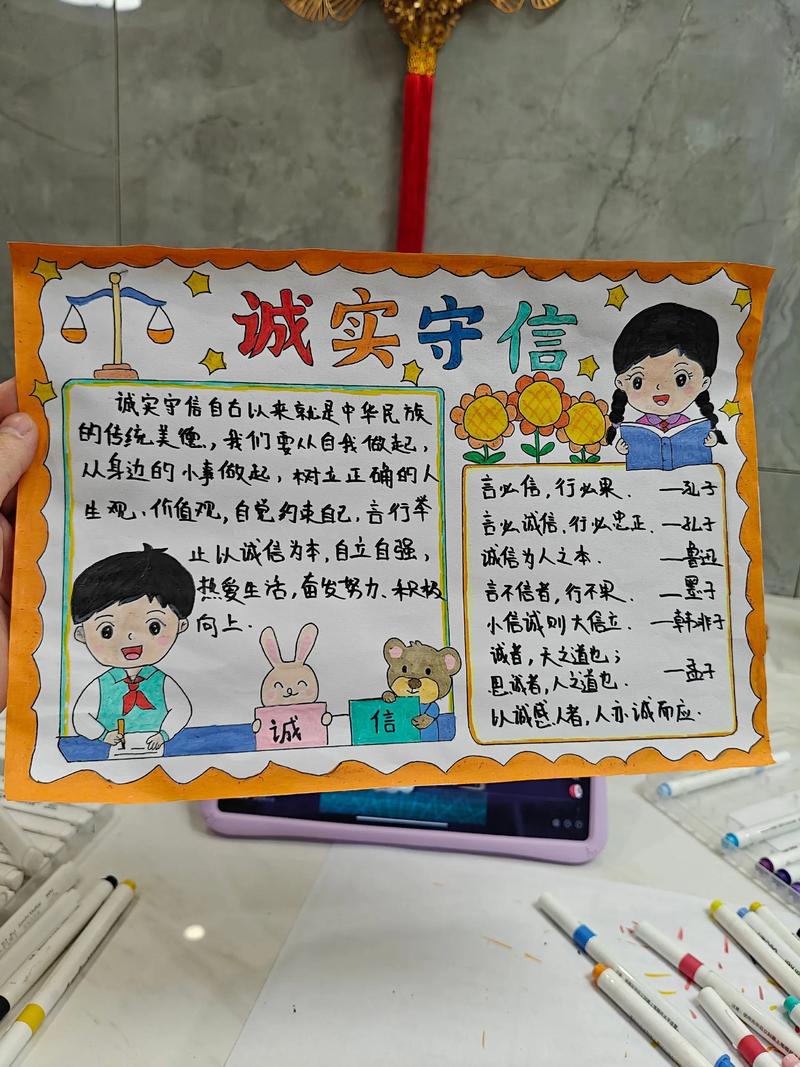 诚实守信
诚实守信自古以来就是中华民族
的传统美德.,我们要从自我做起,
从身边的小事做起,树立正确的人
生观、价值观,自觉约束自己,言行举
止以诚信为本,自立自强,
热爱生活,奋发努力、积极
向上.
诚
信
言必信,行必果. —孔子
言必诚信,行必忠正. —孔子
诚信为人之本. —鲁迅
言不信者,行不果. —墨子
小信诚则大信立. —韩非子
诚者,天之道也;
思诚者,人之道也. —孟子
以诚感人者,人亦诚而应.